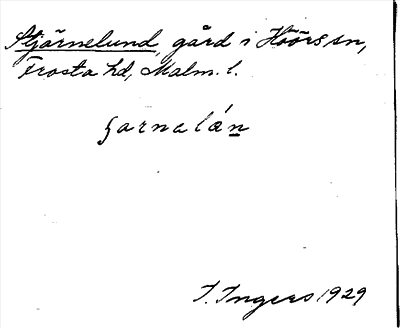 Stjärnelund, gård i Höörs sn,
Frosta hd, Malm. l.
ʂarnalán
I. Ingers 1929